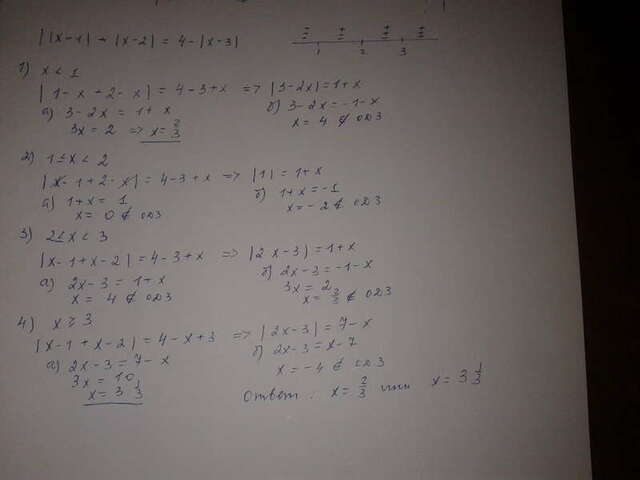 | |x-1| + |x-2| = 4 - |x-3|
1 2 3
1) x < 1
| 1 - x + 2 - x | = 4 - 3 + x => |3-2x| = 1+x
а) 3 - 2x = 1 + x б) 3 - 2x = -1 - x
3x = 2 => x = 2/3 x = 4 ∉ ОДЗ
2) 1 ≤ x < 2
|x - 1 + 2 - x| = 4 - 3 + x => |1| = 1 + x
а) 1 + x = 1 б) 1 + x = -1
x = 0 ∉ ОДЗ x = -2 ∉ ОДЗ
3) 2 ≤ x < 3
|x - 1 + x - 2| = 4 - 3 + x => |2x - 3| = 1 + x
а) 2x - 3 = 1 + x б) 2x - 3 = -1 - x
x = 4 ∉ ОДЗ 3x = 2
x = 2/3 ∉ ОДЗ
4) x ≥ 3
|x - 1 + x - 2| = 4 - x + 3 => |2x - 3| = 7 - x
а) 2x - 3 = 7 - x б) 2x - 3 = x - 7
3x = 10 x = -4 ∉ ОДЗ
x = 3 1/3
Ответ: x = 2/3 или x = 3 1/3